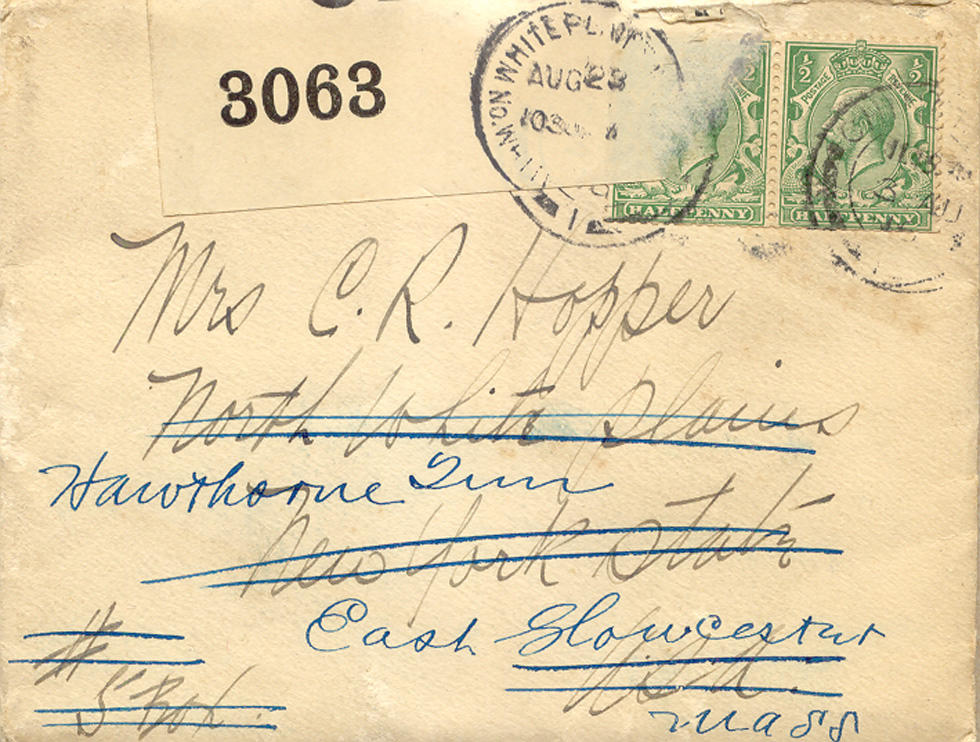 3063
NO. WHITE PLAINS
AUG 23
1030
1
½
½ ½
POSTAGE REVENUE
HALFPENNY HALFPENNY
AU
Mrs C. R. Hopper
North White Plains
Hawthorne Inn
New York State
East Gloucester
U.S.A.
#
5 Box.
Mass